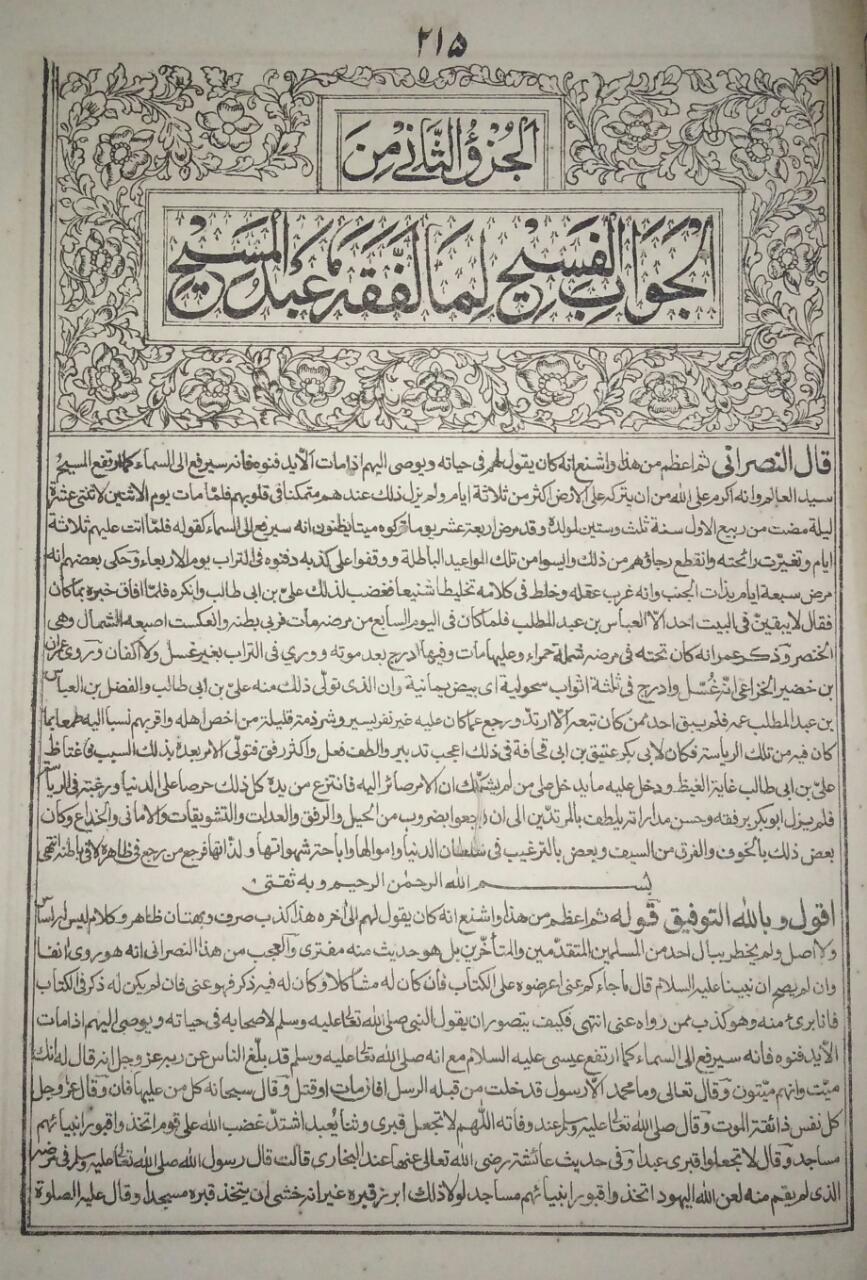 ٢١٥
الجزؤ الثاني من
الجواب الفسيح لما لفقه عبد المسيح
قال النصراني ثم اعظم من هذا واشنع انه كان يقول لهم في حياته ويوصي اليهم اذا مات الا يدفنوه فانه سيرفع الى السماء كما ارتفع المسيح
سيد العالم وانه اكرم على الله من ان يتركه على الارض اكثر من ثلاثة ايام ولم يزل ذلك عندهم متمكنا في قلوبهم فلما مات يوم الاثنين لاثنتي عشرة
ليلة مضت من ربيع الاول سنة ثلث وستين لمولده وقد مرض اربعة عشر يوما تركوه ميتا يظنون انه سيرفع الى السماء كقوله فلما اتت عليهم ثلاثة
ايام وتغيرت رائحته وانقطع رجاؤهم من ذلك وايسوا من تلك المواعيد الباطلة ووقفوا على كذبه دفنوه في التراب يوم الاربعاء وحكى بعضهم انه
مرض سبعة ايام بذات الجنب وانه غرب عقله وخلط في كلامه تخليطا شنيعا فغضب لذلك علي بن ابي طالب وانكره فلما افاق خبره بما كان
فقال لا يبقين في البيت احد الا العباس بن عبد المطلب فلما كان في اليوم السابع من مرضه مات فربى بطنه وانعكست اصبعه الشمال وهي
الخنصر وذكر عمر انه كان تحته في مرضه شملة حمراء وعليها مات وفيها ادرج بعد موته ووري في التراب بغير غسل ولا اكفان وروى عمران
بن خضير الخزاعي انه غسل وادرج في ثلثة اثواب سحولية اي بيض يمانية وان الذي تولى ذلك منه علي بن ابي طالب والفضل بن العباس
بن عبد المطلب عمه فلم يبق احد ممن كان تبعه الا ارتد ورجع عما كان عليه غير نفر يسير وشرذمة قليلة من اخص اهله واقربهم نسبا اليه طمعا بما
كان فيه من تلك الرياسة فكان لابي بكر عتيق بن ابي قحافة في ذلك اعجب تدبير والطف فعل واكثر رفق فتولى الامر بعده بذلك السبب فاغتاظ
علي بن ابي طالب غاية الغيظ ودخل عليه ما يدخل على من لم يشك ان الامر صائر اليه فانتزع من يده كل ذلك حرصا على الدنيا ورغبة في الرياسة
فلم يزل ابو بكر برفقه وحسن مداراته يلطف بالمرتدين الى ان رجعوا بضروب من الحيل والرفق والعدات والتشويقات والاماني والخداع وكان
بعض ذلك بالخوف والفرق من السيف وبعض بالترغيب في سلطان الدنيا واموالها واباحة شهواتها ولذاتها فرجع من رجع في ظاهره لا في باطنه انتهى
بسم الله الرحمن الرحيم وبه ثقتي
اقول وبالله التوفيق قوله ثم اعظم من هذا واشنع انه كان يقول لهم الى اخره هذا كذب صرف وبهتان ظاهر وكلام ليس له اساس
ولا اصل ولم يخطر ببال احد من المسلمين المتقدمين والمتأخرين بل هو حديث منه مفترى والعجب من هذا النصراني انه هو روى انفا
وان لم يصح ان نبينا عليه السلام قال ما جاءكم عني اعرضوه على الكتاب فان كان له مشاكلا وكان له فيه ذكر فهو عني فان لم يكن له ذكر في الكتاب
فانا بريء منه وهو كذب ممن رواه عني انتهى فكيف يتصور ان يقول النبي صلى الله تعالى عليه وسلم لاصحابه في حياته ويوصي اليهم اذا مات
الا يدفنوه فانه سيرفع الى السماء كما ارتفع عيسى عليه السلام مع انه صلى الله تعالى عليه وسلم قد بلغ الناس عن ربه عز وجل انه قال له انك
ميت وانهم ميتون وقال تعالى وما محمد الا رسول قد خلت من قبله الرسل افان مات او قتل وقال سبحانه كل من عليها فان وقال عز وجل
كل نفس ذائقة الموت وقال صلى الله تعالى عليه وسلم عند وفاته اللهم لا تجعل قبري وثنا يعبد اشتد غضب الله على قوم اتخذوا قبور انبيائهم
مساجد وقال لا تجعلوا قبري عيدا وفي حديث عائشة رضي الله تعالى عنها عند البخاري قالت قال رسول الله صلى الله تعالى عليه وسلم في مرضه
الذي لم يقم منه لعن الله اليهود اتخذوا قبور انبيائهم مساجد لولا ذلك ابرز قبره غير انه خشي ان يتخذ قبره مسجدا وقال عليه الصلوة